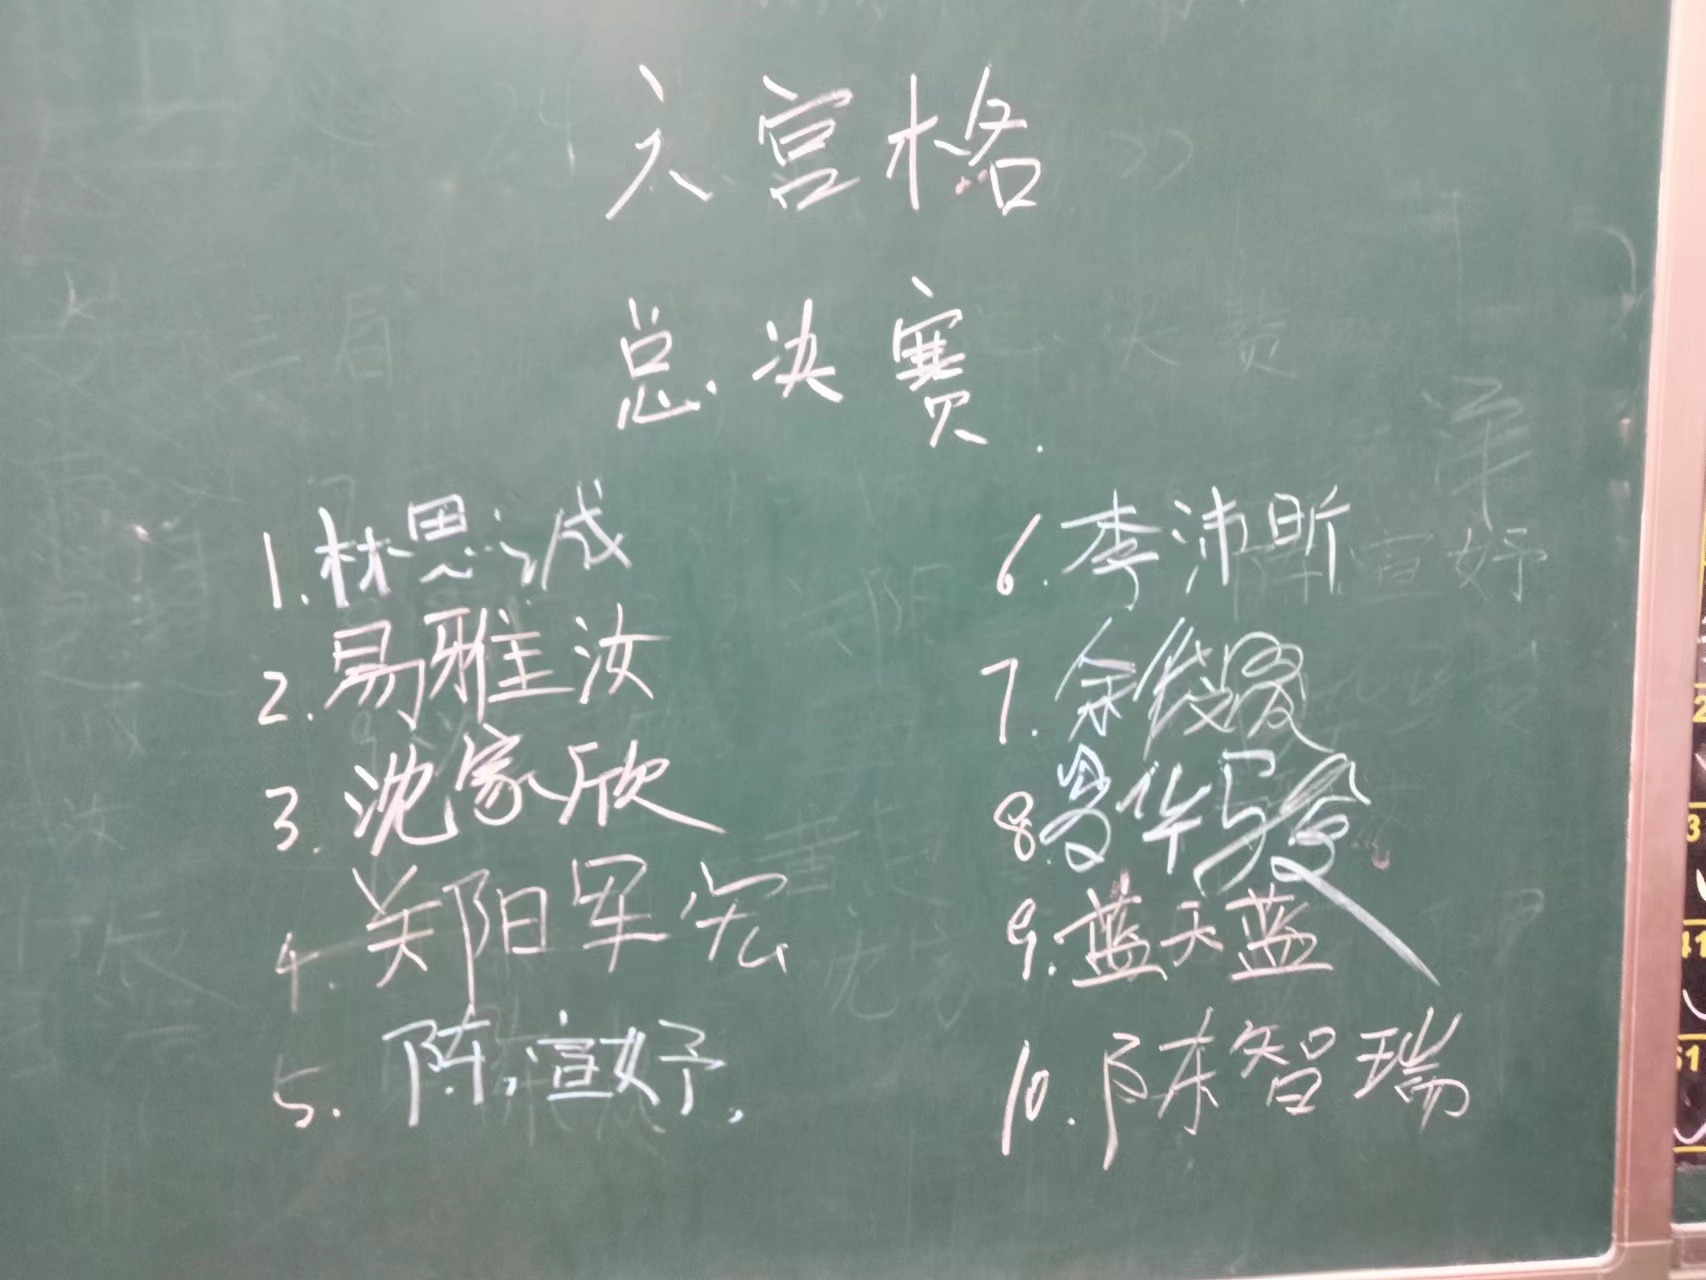 六宫格
总决赛.
1. 林思诚
2. 易雅汝
3. 沈家欣
4. 关阳军宏
5. 陈宣妤.
6. 李沛昕
7. 余筱
8.
9. 蓝天蓝
10. 陈智瑞